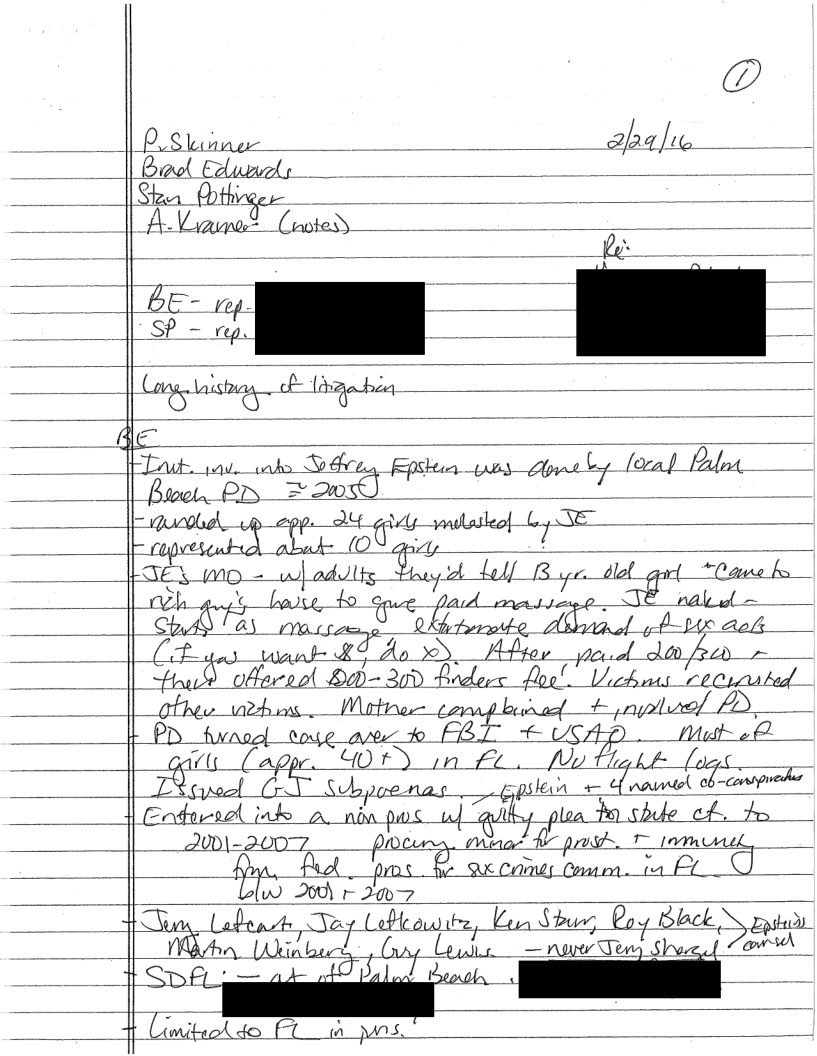 1
P. Skinner 2/29/16
Brad Edwards
Stan Pottinger
A. Kramer (notes)
Re:
BE - rep.
SP - rep.
Long history of litigation
BE
- Init. inv. into Jeffrey Epstein was done by local Palm
Beach PD ≅ 2005
- rounded up app. 24 girls molested by JE
- represented about 10 girls
- JE's MO - w/ adults they'd tell 13 yr. old girl "Come to
rich guy's house to give paid massage. JE naked -
starts as massage demand of sex acts
(if you want $, do x). After, paid 200/300 -
then offered $200-300 finders fee. Victims recruited
other victims. Mother complained + involved PD.
- PD turned case over to FBI + USAO. Most of
girls (appr. 40+) in FL. No flight logs.
Issued GJ subpoenas. Epstein + 4 named co-conspirators
- Entered into a non pros w/ guilty plea to state ct. to
2001-2007 procuring minor for prost. + immunity
from fed. pros. for sex crimes comm. in FL
b/w 2001 + 2007
- Jerry Lefcourt, Jay Lefkowitz, Ken Starr, Roy Black, > Epstein's
Martin Weinberg, Guy Lewis - never Jerry Shargel counsel
- SDFL: - out of Palm Beach.
- Limited to FL in pros.